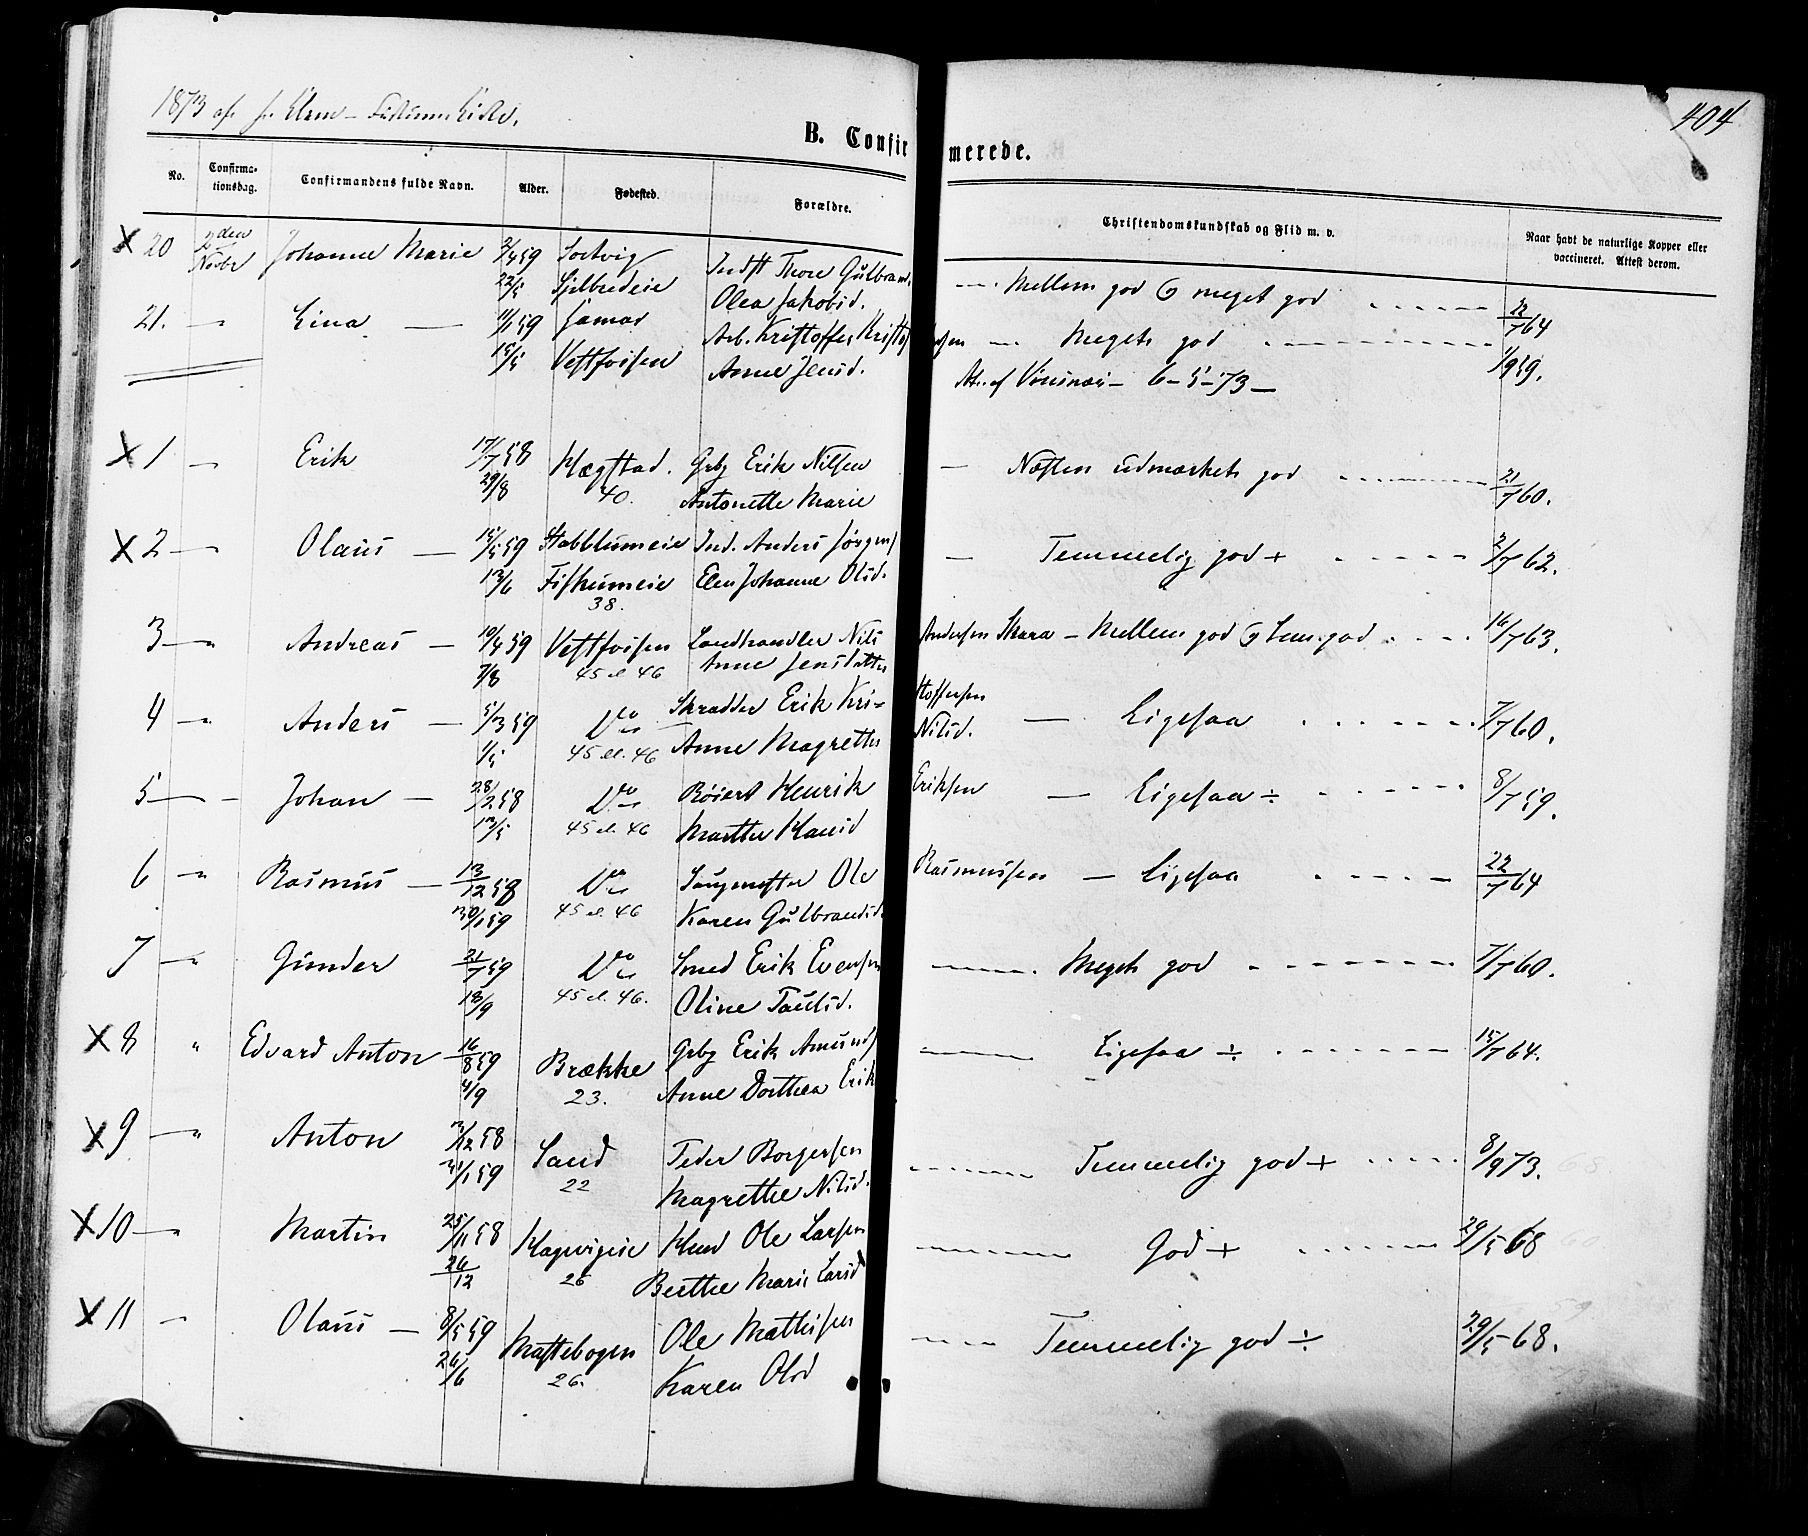 1873
404
B. Confirmerede.
No.
Confirma-
tionsdag.
Confirmandens fulde Navn.
Alder.
Fødested.
Forældre.
Christendomskundskab og Flid m. v.
Naar havt de naturlige Kopper eller
vaccineret. Attest derom.
X 20 2den Novbr Johanne Marie 2/4 59 Indst Thore Gulbrand. — Mellem god og meget god 22/7 64
22/5 Olea Jakobsd.
21. — " Lina — 11/1 59 Arb. Kristoffer Kristoffersen — Meget god 1/9 59.
15/5 Vestfossen Anne Jensd. 6-5-73 —
X 1 — " Erik 17/7 58 Hægstad. Grbg Erik Nilsen — Næsten udmærket god 21/7 60.
29/8 40. Antonette Marie
X 2 — " Olaus — 15/5 59 Stabblumeie Ind. Anders Jørgens — Temmelig god + 2/7 62.
13/6 Fiskumeie Elen Johanne Olsd.
38.
3 — " Andreas — 10/4 59 Vestfossen Landhandler Nils Andersen Skara — Mellem god og tem. god 16/7 63.
7/8 45 el. 46 Anne Jensdatter
4 — " Anders — 5/3 59 Do Skrædder Erik Kristoffersen — Ligesaa 7/7 60.
1/5 45 el. 46 Anne Magrethe Nilsd.
5 — " — Johan — 28/12 58 Do Henrik Eriksen — Ligesaa ÷ 8/7 59.
13/5 45 el. 46 Marthe Hansd
6 — " Rasmus — 13/12 58 Do Ole Rasmussen — Ligesaa 22/7 64
30/1 59 45 el. 46 Karen Gulbrandsd.
7 — " Gunder 21/7 59 Do Smed Erik Evensen — Meget god 7/7 60.
18/9 45 el. 46. Oline Paulsd.
X 8 " Edvard Anton 16/8 59 Brække Grbg Erik Amunds — Ligesaa ÷ 15/7 64.
4/9 23. Anne Dorthea Erik
X 9 — " Anton 3/12 58 Sand Peder Borgersen — Temmelig god + 8/9 73.
31/1 59 22 Magrethe Nilsd.
X 10 — " Martin 25/11 58 Hagevigeie Ole Larsen — God + 29/5 68
26/12 26 Berthe Marie Larsd
X 11 — " Olaus — 8/5 59 Mastebogen Ole Mathisen — Temmelig god ÷ 29/5 68.
26/6 26. Karen Olsd